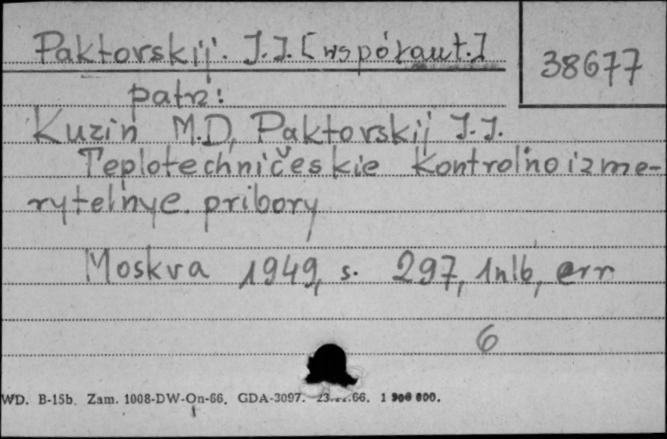 Paktorskij. J.J. [współaut.]
38677
patrz:
Kuzin M.D, Paktorskij J.J.
Teplotechničeskie Kontrolno izme-
rytelnye pribory
Moskva 1949, s. 297, 1nlb, err
6
WD. B-15b. Zam. 1008-DW-On-66. GDA-3097. 66. 1 900 000.